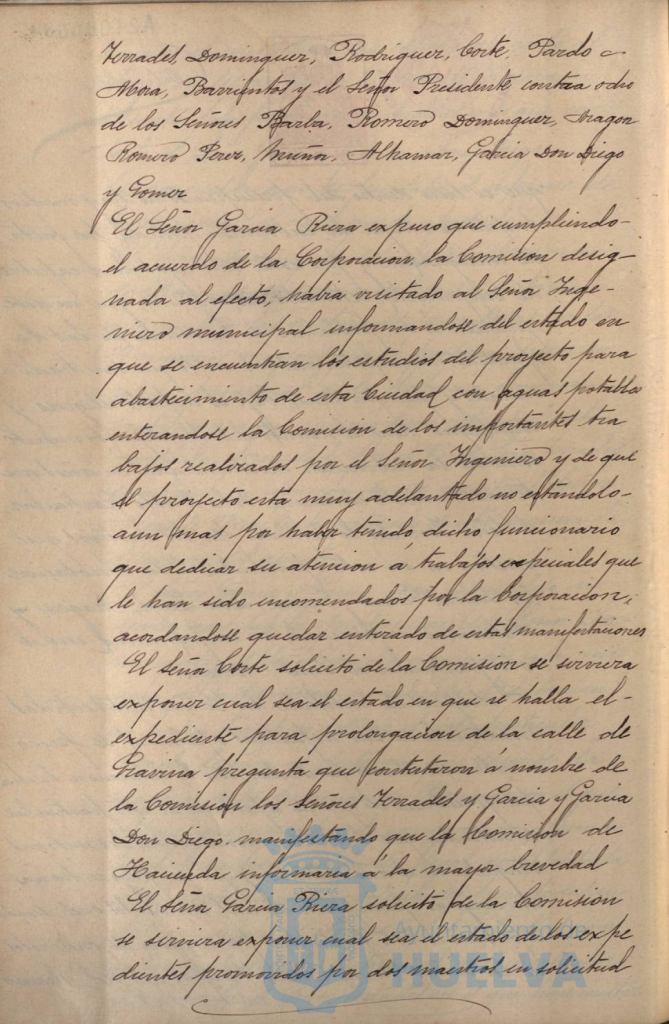 Terrades, Dominguez, Rodriguez, Corte, Pardo
Mora, Barrientos y el Señor Presidente contra ocho
de los Señores Barba, Romero Dominguez, Aragon
Romero Perez, Muñoz, Alhamar, Garcia Don Diego
y Gomez
El Señor Garcia Riera expuso que cumpliendo-
el acuerdo de la Corporacion, la Comision desig-
nada al efecto, habia visitado al Señor Inge-
niero municipal informandose del estado en
que se encuentran los estudios del proyecto para
abastecimiento de esta Ciudad con aguas potables
enterandose la Comision de los importantes tra
bajos realizados por el Señor Ingeniero y de que
el proyecto esta muy adelantado no estándolo-
aun mas por haber tenido dicho funcionario
que dedicar su atencion á trabajos especiales que
le han sido encomendados por la Corporacion,
acordandose quedar enterado de estas manifestaciones
El Señor Corte solicitó de la Comision se sirviera
exponer cual sea el estado en que se halla el-
expediente para prolongacion de la calle de
Gravina pregunta que contestaron á nombre de
la Comision los Señores Terrades y Garcia y Garcia
Don Diego manifestando que la Comision de
Hacienda informaria á la mayor brevedad
El Señor Garcia Riera solicitó de la Comision
se sirviera exponer cual sea el estado de los expe
dientes promovidos por dos maestros en solicitud
HUELVA